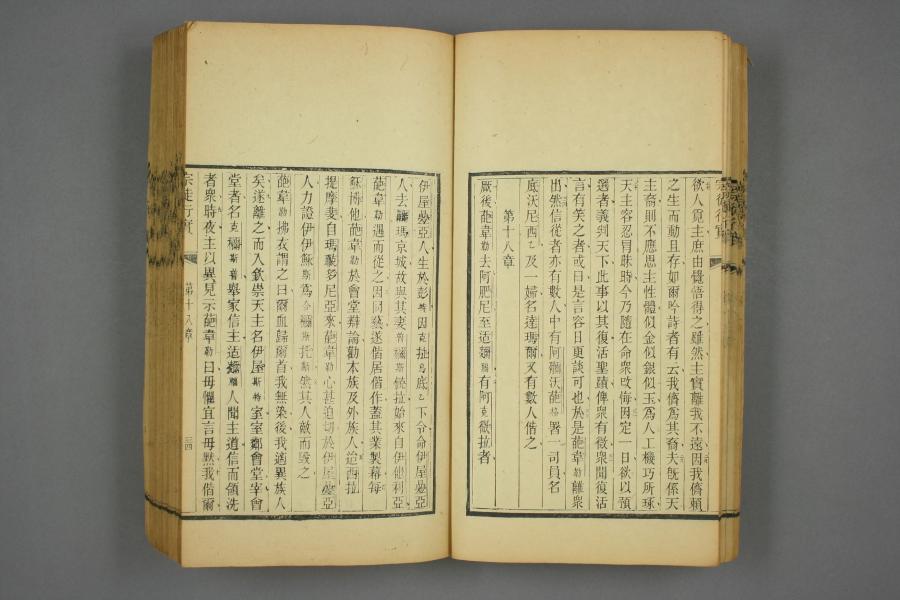 欲人覓主庶由覺悟得之雖然主實離我不遠因我儕賴
之生而動且存如爾吟詩者有云我儕為其裔夫旣係天
主裔則不應思主性體似金似銀似玉為人工機巧所琢
天主容忍冒昧時今乃隨在命衆攺悔因定一日欲以預
選者義判天下此事以其復活聖蹟俾衆有徵衆聞復活
言有笑之者或曰是言容日更談可也於是葩韋勒離衆
出然信從者亦有數人中有阿沃葩格署一司員名
底沃尼西乙及一婦名達瑪爾又有數人偕之
第十八章
厥後葩韋勒去阿肥尼至适爾福有阿克徼拉者
伊屋叄亞人生於彭特因克拉烏底乙下令命伊屋叄亞
人去瑪京城故與其妻普斯拉始來自伊他利亞
葩韋勒遇而從之因同藝遂偕居偕作蓋其業製幕每
穌博他葩韋勒於會堂辯論勸本族及外族人迨西拉
提摩斐自瑪多尼亞來葩韋勒心甚迫切於伊屋叄亞
人力證伊伊穌斯為合斯托斯然其人敵而毀之
葩韋勒拂衣謂之曰爾血歸爾首我無染後我適異族人
矣遂離之而入欽崇天主名伊屋斯特室室鄰會堂宰會
堂者名克斯普舉家信主适人聞主道信而領洗
者衆時夜主以異見示葩韋勒曰毋懼宜言毋默我偕爾
宗徒行實
第十八章
三四